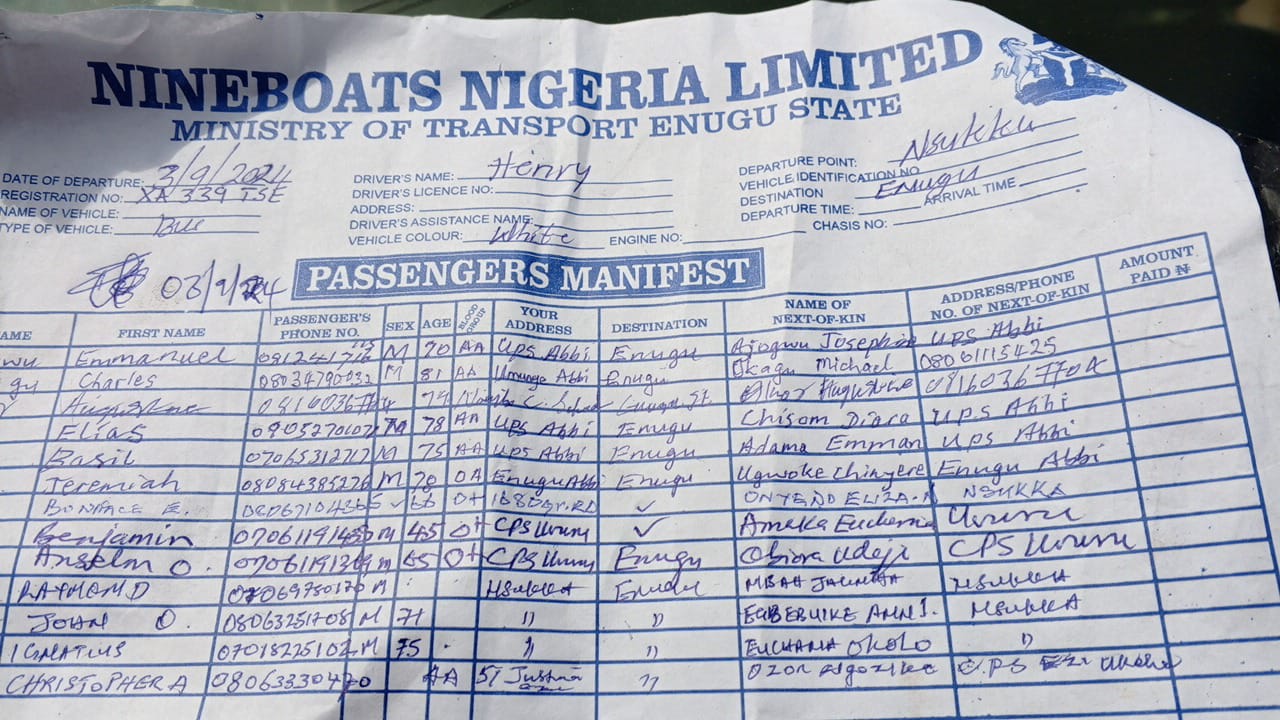 NINEBOATS NIGERIA LIMITED
MINISTRY OF TRANSPORT ENUGU STATE
DATE OF DEPARTURE: 3/9/2024
REGISTRATION NO: XA 339 TSE
NAME OF VEHICLE:
TYPE OF VEHICLE: Bus
DRIVER'S NAME: Henry
DRIVER'S LICENCE NO:
ADDRESS:
DRIVER'S ASSISTANCE NAME:
VEHICLE COLOUR: White ENGINE NO:
DEPARTURE POINT: Nsukka
VEHICLE IDENTIFICATION NO
DESTINATION Enugu ARRIVAL TIME
DEPARTURE TIME: CHASIS NO:
03/9/24
PASSENGERS MANIFEST
AME FIRST NAME PASSENGER'S PHONE NO. SEX AGE BLOOD GROUP YOUR ADDRESS DESTINATION NAME OF NEXT-OF-KIN ADDRESS/PHONE NO. OF NEXT-OF-KIN AMOUNT PAID ₦
wu Emmanuel M 70 AA UPS Abbi Enugu Ajogwu Josephine UPS Abbi
gu Charles M 81 AA Umunya Abbi Enugu Okagu Michael 08061115425
Augustine 79 Enugu 08160367704
Elias M 78 AA UPS Abbi Enugu Chisom Diara UPS Abbi
Basil 07065312717 M 75 AA UPS Abbi Enugu Adama Emman UPS Abbi
Jeremiah 08084385276 M 70 OA Enugu Abbi Enugu Ugwoke Chinyere Enugu Abbi
BONIFACE E. ✓ 66 O+ ✓ ELIZA. NSUKKA
Benjamin M O+ CPS Ururu ✓ Amaka Eucheria Ururu
Anselm O. M 65 O+ CPS Ururu Enugu Obiora Udeji CPS Ururu
RAYMOND 07069780170 M NSUKKA Enugu MBAH NSUKKA
JOHN O. 08063251708 M 71 " " EGBERUIKE ANN I. NSUKKA
IGNATIUS 07018225102 M 75 - " " EUCHARIA OKOLO "
CHRISTOPHER A AA 57 " OZOR